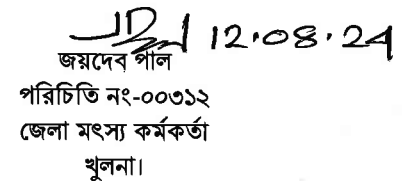 12.08.24
জয়দেব পাল
পরিচিতি নং-০০৩১২
জেলা মৎস্য কর্মকর্তা
খুলনা।